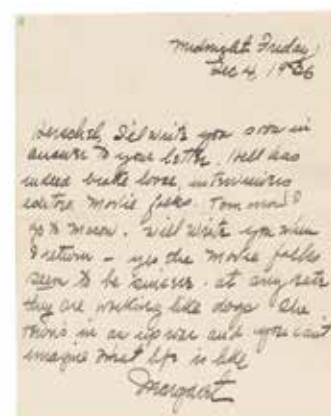 Midnight Friday
Dec 4, 1936
Herschel, I'll write you soon in
answer to your letter. Hell has
indeed broke loose, interviewers
editors movie folks. Tomorrow I
go to Macon. Will write you when
I return - yes the movie folks
seem to be sincere. at any rate
they are working like dogs. The
town's in an uproar and you can't
imagine what life is like
Margaret